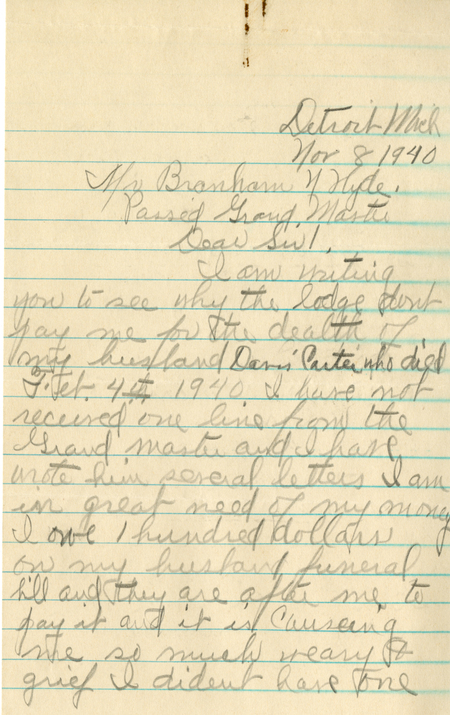 Detroit Mich
Nov 8 1940
Mr Branham N Hyde.
Passed Grand Master
Dear Sir!,
I am writing
you to see why the lodge dont
pay me for the dealth of
my husband Davis Carter who died
Fet. 4th 1940 I have not
received one line from the
Grand master and I have
wrote him several letters I am
in great need of my money
I owe 1 hundred dollars
on my husband funeral
bill and they are after me to
pay it and it is causeing
me so much weary &
grief I dident have one